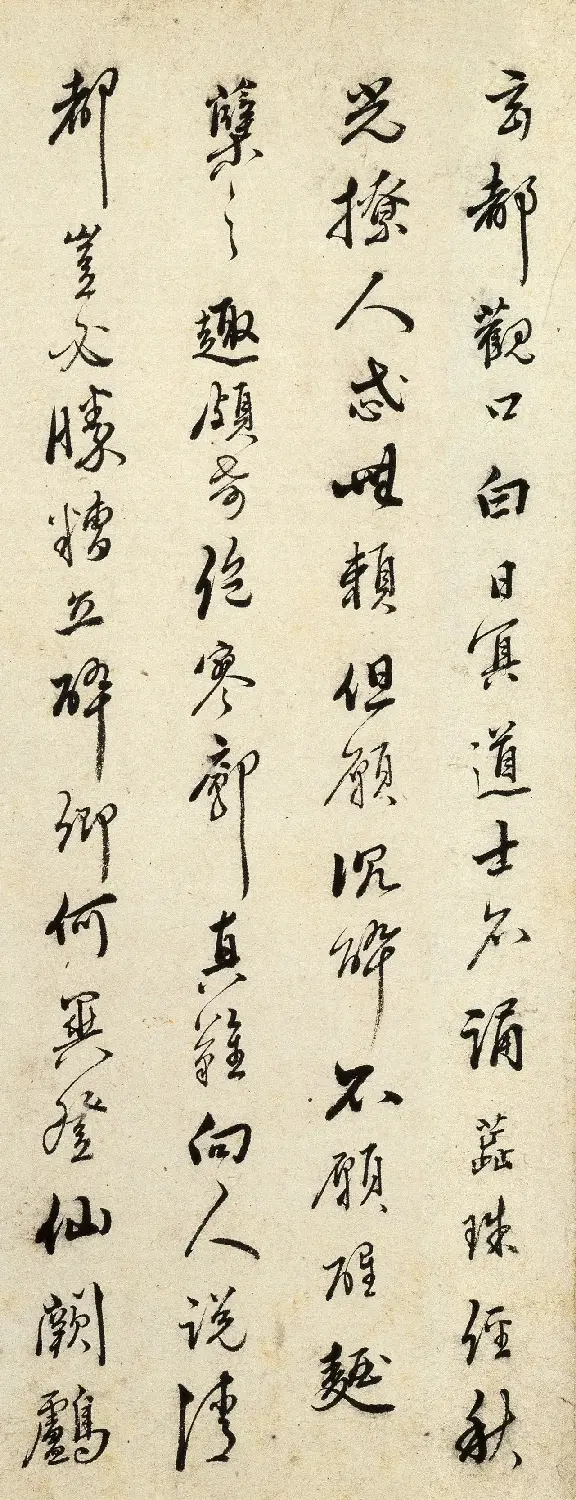 玄都觀口白日冥道士不誦蕋珠經秋
光撩人忒無賴但願沉醉不願醒麯
糵之趣頗奇絕寥廓真難向人說清
都豈必勝糟丘醉鄉何異登仙闕鸕